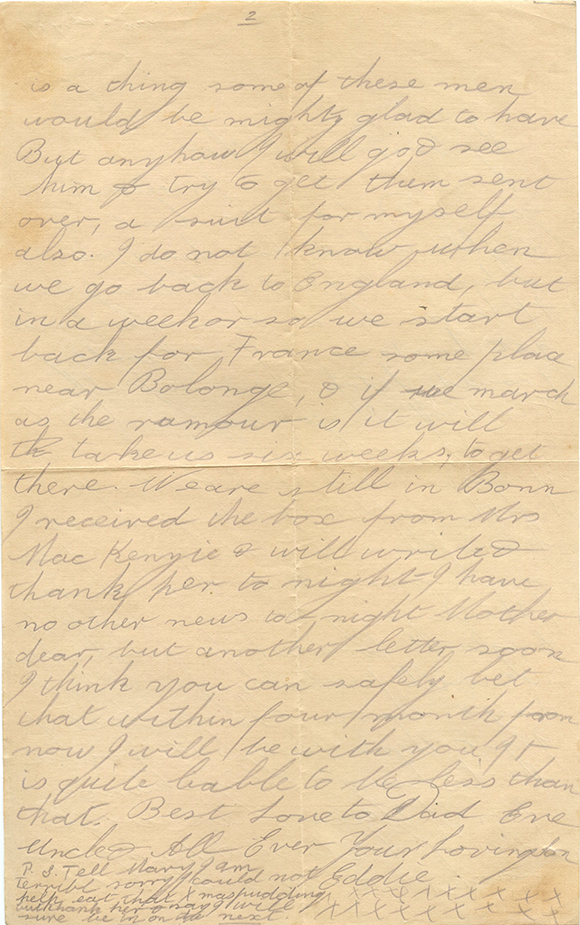 2
is a thing some of these men
would be mighty glad to have
But anyhow I will go & see
him & try to get them sent
over, a suit for myself
also. I do not know when
we go back to England, but
in a week or so we start
back for France some place
near Bolonge, & if we march
as the ramour is it will
take us six weeks, to get
there. We are still in Bonn
I received the box from Mrs
Mac Kenyie & will write &
thank her to night I have
no other news to night Mother
dear, but another letter soon
I think you can safely bet
that within four month from
now I will be with you It
is quite liable to be less than
that. Best Love to Dad Eve
Uncle & All Ever Your Loving son
Eddie
P. S. Tell Mary I am
terribl sorry I could not
help eat that Xmas pudding
but thank her & say I will
sure be in on the next.
x x x x x x x x x
x x x x x x x x x